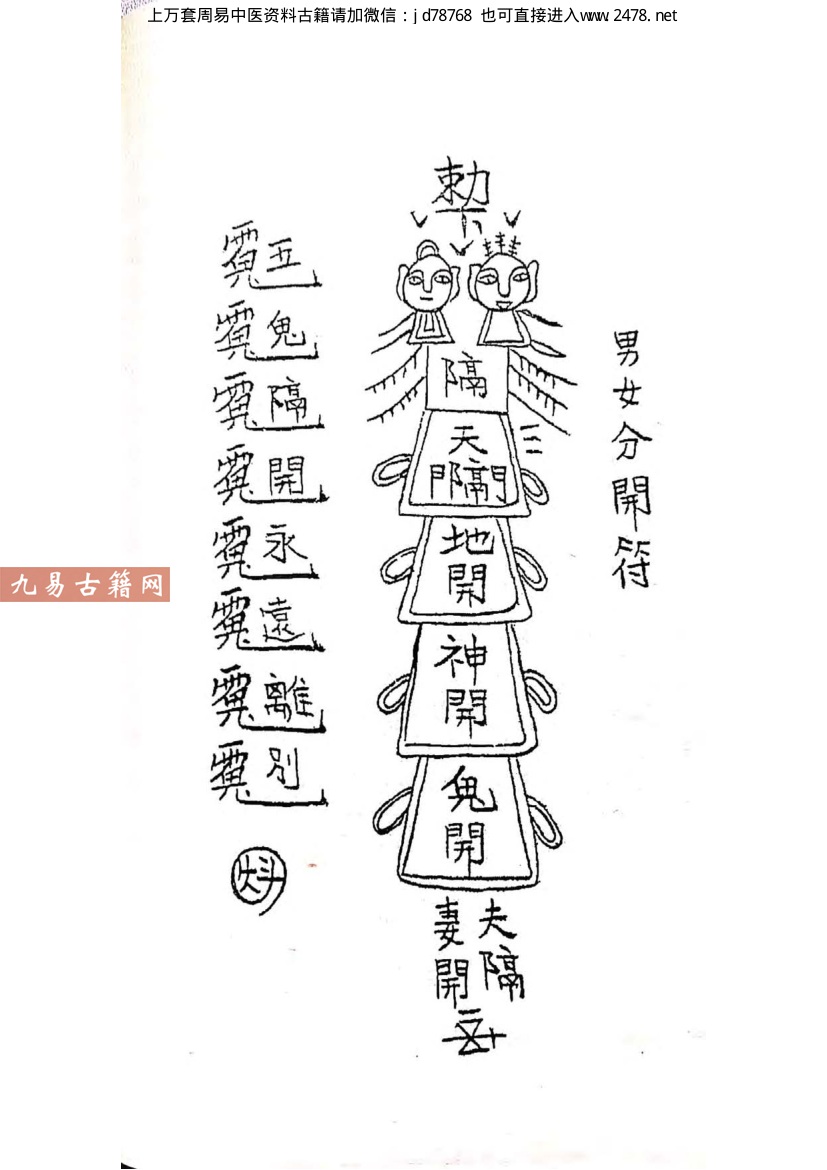 上万套周易中医资料古籍请加微信：jd78768 也可直接进入www.2478.net
男女分開符
勅下
隔
天
門隔門
地開
神開
鬼開
夫隔
妻開
五
鬼
隔
開
永
遠
離
别
九易古籍网